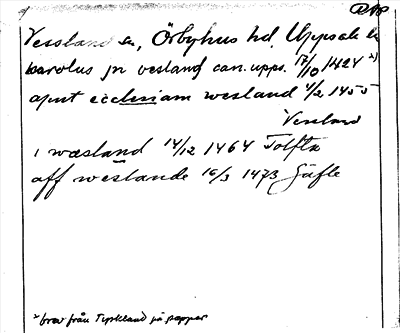 DMP
Vessland sn, Örbyhus hd, Uppsala l.
karolus in vesland can. upps. 17/10 1424 x)
aput ecclesiam wesland 4/2 1455
Vessland
i wæsland 14/12 1464 Tolfta
aff westlande 16/3 1473 Gäfle
x brev från Tyskland på papper